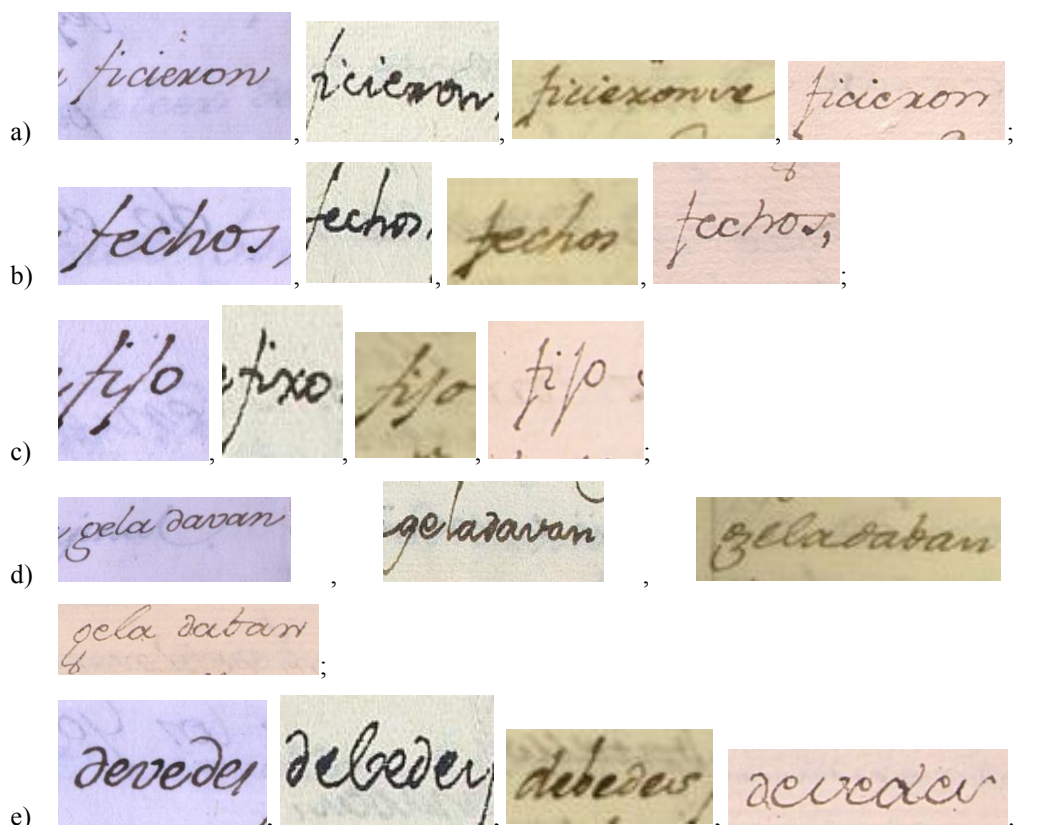 a) ficieron , ficieron, , ficieronve , ficieron ;
b) fechos, , fechos, , fechos , fechos, ;
c) fijo , fixo , fijo , fijo ;
d) gela davan , geladavan , geladaban
gela daban ;
e) devedes , debedes , debedes , devedes .